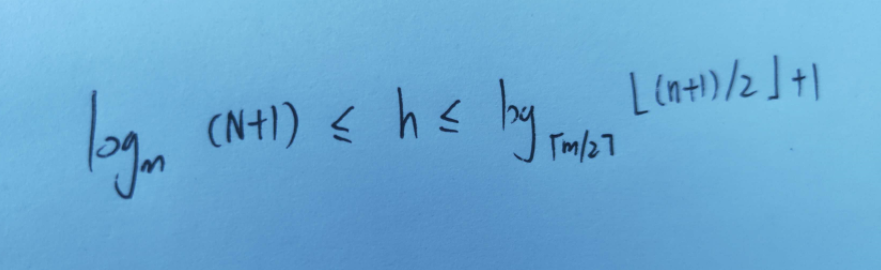 log_m (N+1) ≤ h ≤ log_⌈m/2⌉ ⌊(n+1)/2⌋+1